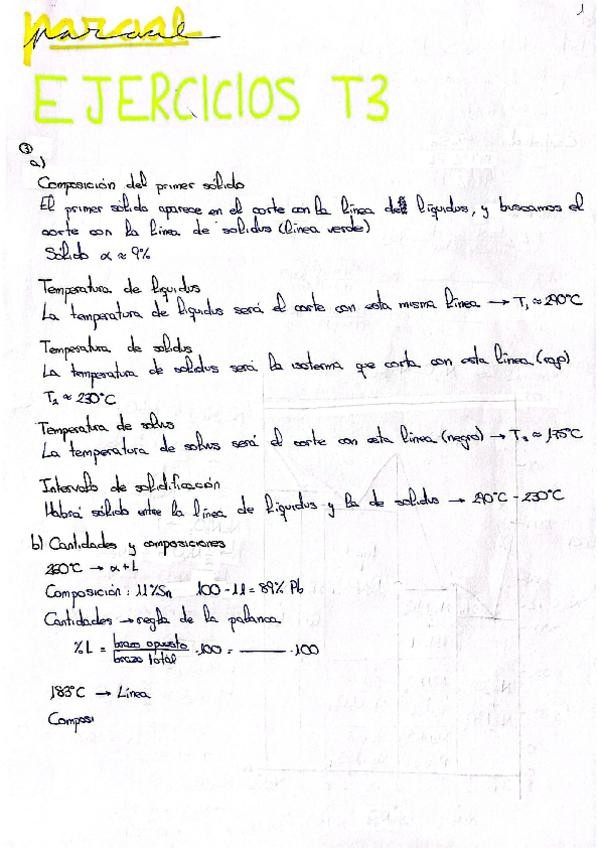 1
parcial
EJERCICIOS T3
③
a)
Composición del primer sólido
El primer sólido aparece en el corte con la línea de líquidus, y buscamos el
corte con la línea de solidus (línea verde)
Sólido α ≈ 9%
Temperatura de líquidus
La temperatura de líquidus será el corte con esta misma línea → T₁ ≈ 290°C
Temperatura de solidus
La temperatura de solidus será la isoterma que corta con esta línea (rojo)
T₂ ≈ 230°C
Temperatura de solvus
La temperatura de solvus será el corte con esta línea (negro) → T₃ ≈ 175°C
Intervalo de solidificación
Habrá sólido entre la línea de líquidus y la de solidus → 290°C - 230°C
b) Cantidades y composiciones
260°C → α+L
Composición: 11%Sn 100-11 = 89% Pb
Cantidades → regla de la palanca
%L = brazo opuesto / brazo total · 100 = ——— · 100
183°C → Línea
Composi